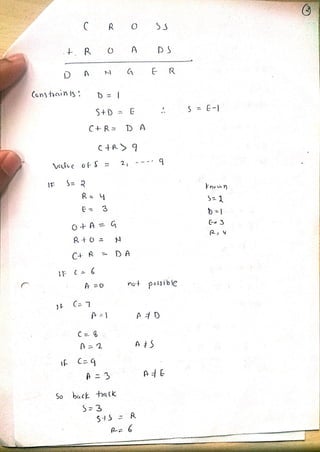 2
C R O S S
+ R O A D S
D A N G E R
Constraints : D = 1
S+D = E ∴ S = E-1
C+R = D A
C+R > 9
Value of S = 2, ---- 9
If S = 2 Known
R = 4 S=2
E = 3 D=1
O + A = G E=3
R + O = N R=4
C + R = D A
If C = 6
A = 0 not possible
If C = 7
A = 1 A ≠ D
C = 8
A = 2 A ≠ S
If C = 9
A = 3 A ≠ E
So back track
S = 3
S + S = R
R = 6